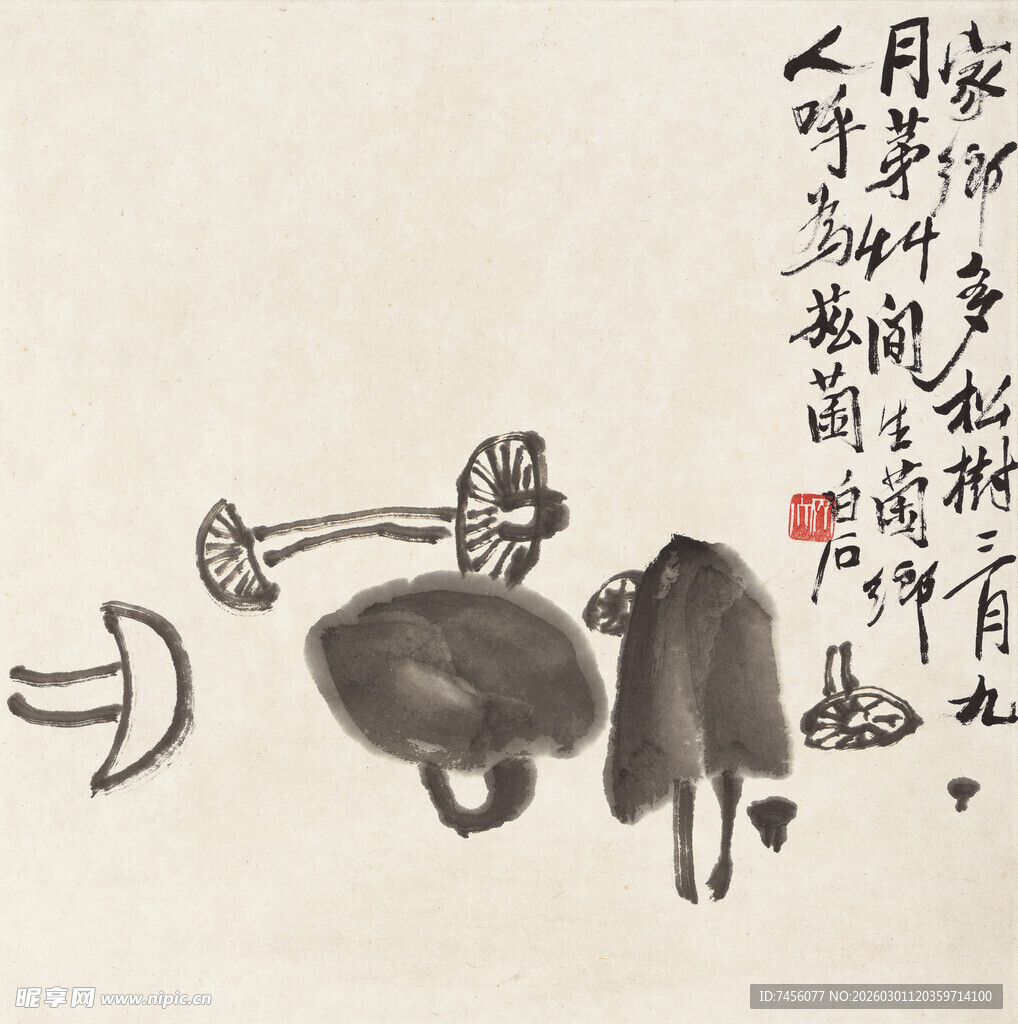 家鄉多松樹三月九
月茅艸間生菌鄉
人呼為菰菌
白石
昵享网 www.nipic.cn
ID:7456077 NO:20260301120359714100